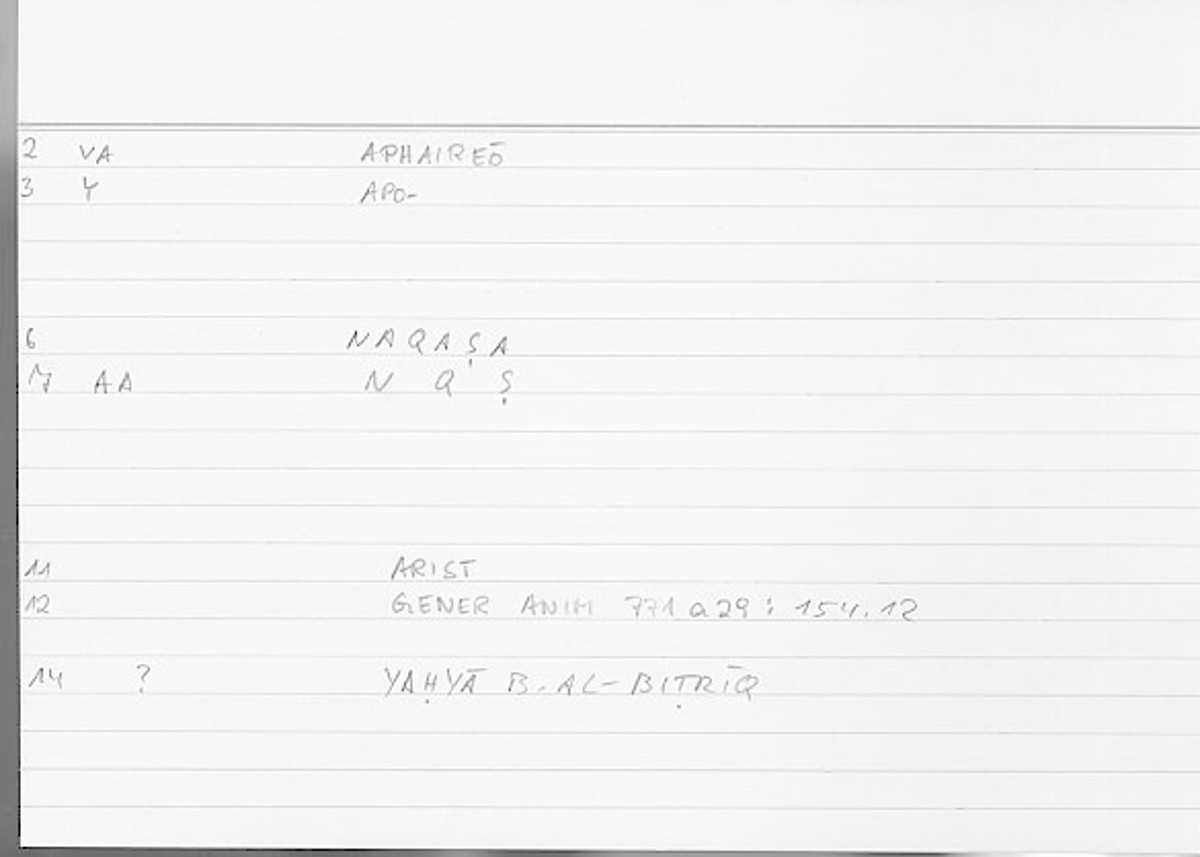 2 VA APHAIREŌ
3 Y APO-
6 NAQAṢA
7 AA N Q Ṣ
11 ARIST
12 GENER ANIM 771a29 : 154.12
14 ? YAḤYĀ B. AL-BIṬRĪQ